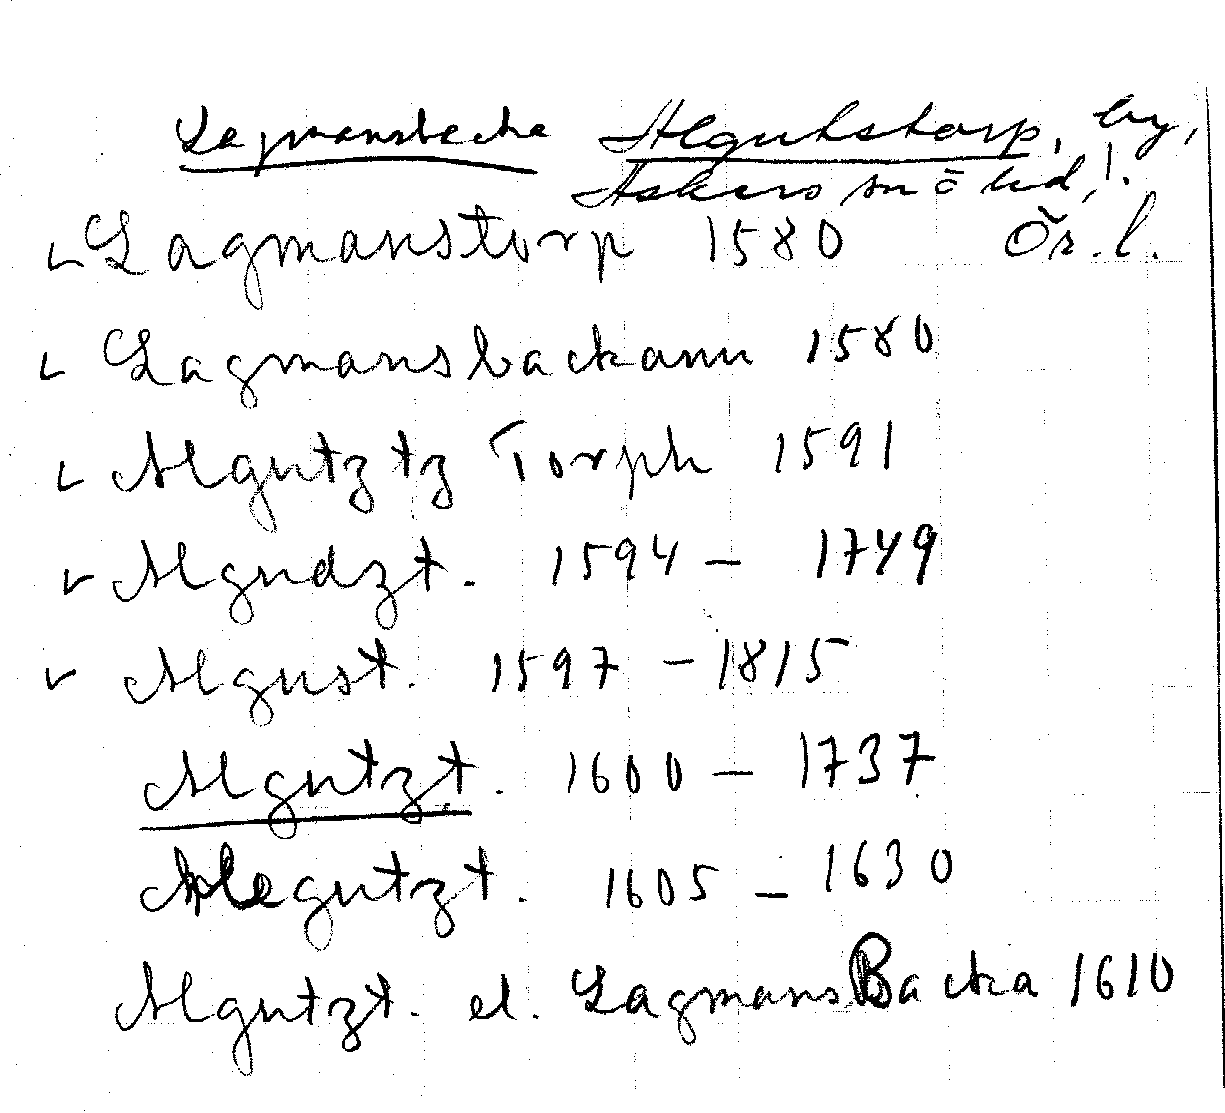 Lagmansbacka Algutstorp, by,
Askers sn ö hd,!
Lagmanstorp 1580 Ör. l.
Lagmansbackann 1580
Algutztz Torph 1591
Algudzt. 1594 – 1749
Algust. 1597 – 1815
Algutzt. 1600 – 1737
Alegutzt. 1605 – 1630
Algutzt. el. LagmansBacka 1610